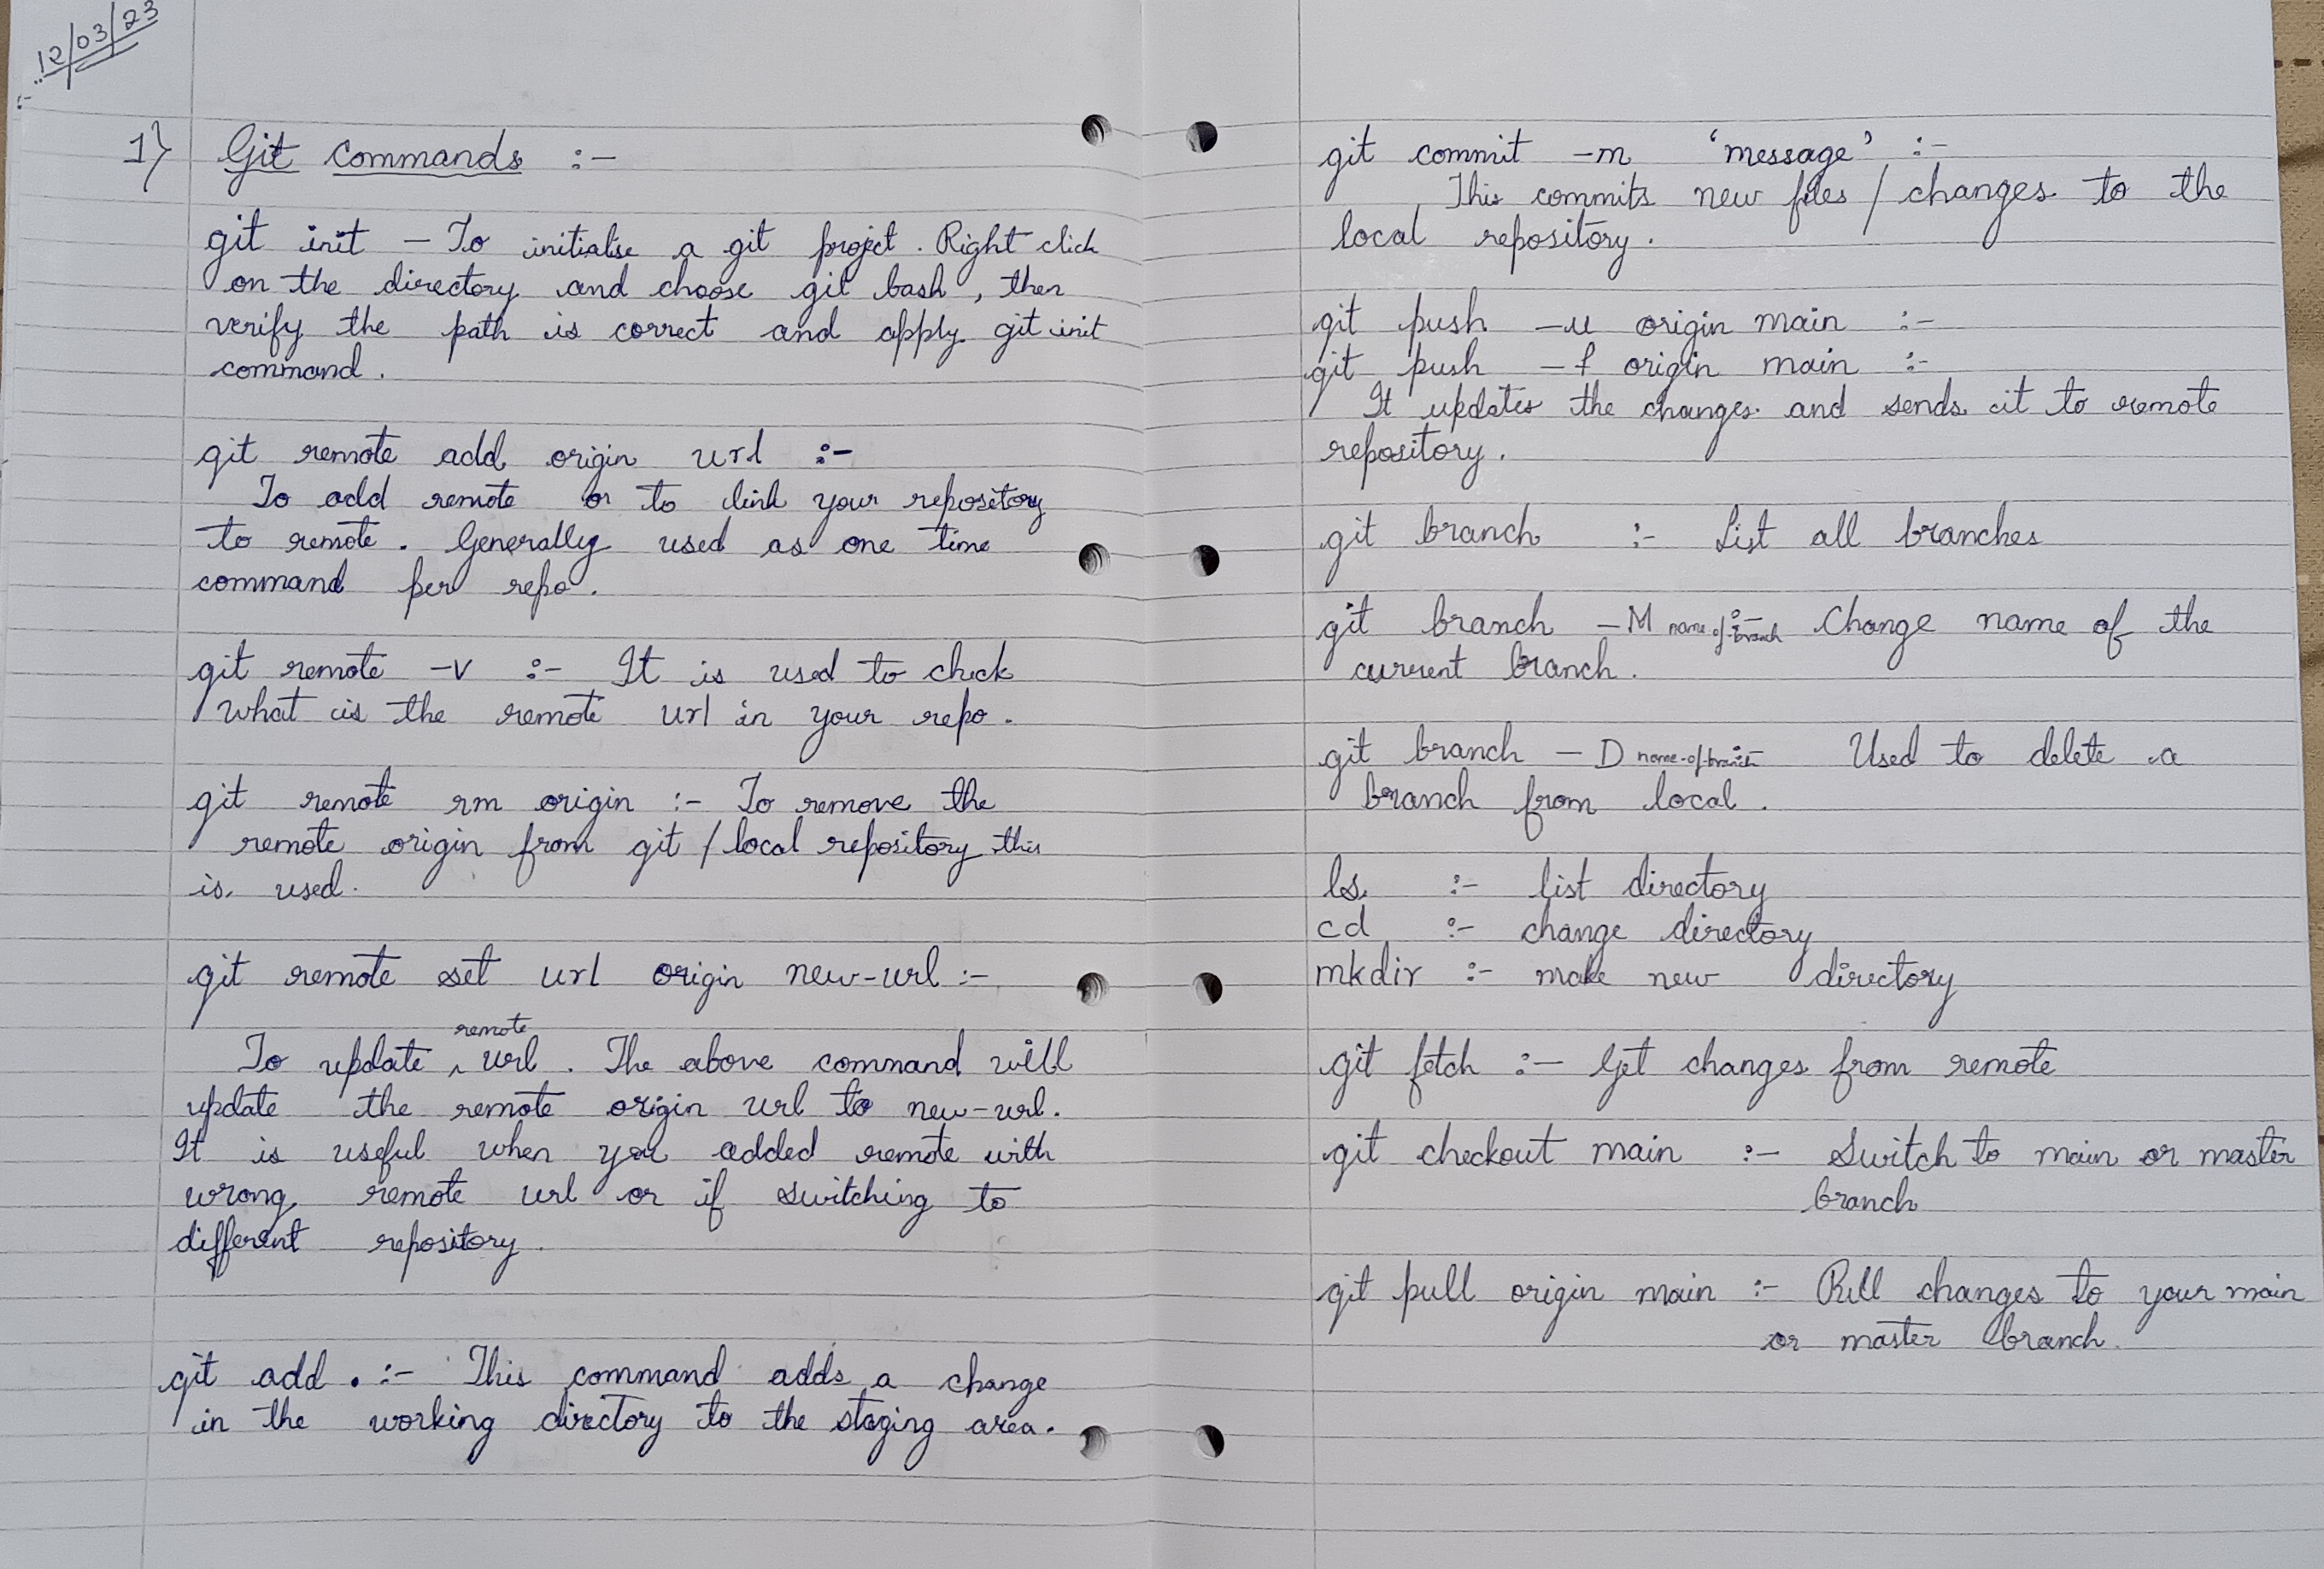 12/03/23
1} Git commands :-
git init - To initialise a git project. Right click
on the directory and choose git bash, then
verify the path is correct and apply git init
command.
git remote add origin url :-
To add remote or to link your repository
to remote. Generally used as one time
command per repo.
git remote -v :- It is used to check
what is the remote url in your repo.
git remote rm origin :- To remove the
remote origin from git / local repository this
is used.
git remote set url origin new-url :-
To update remote url. The above command will
update the remote origin url to new-url.
It is useful when you added remote with
wrong remote url or if switching to
different repository.
git add . :- This command adds a change
in the working directory to the staging area.
git commit -m 'message' :-
This commits new files / changes to the
local repository.
git push -u origin main :-
git push -f origin main :-
It updates the changes and sends it to remote
repository.
git branch :- List all branches
git branch -M name-of-branch :- Change name of the
current branch.
git branch -D name-of-branch :- Used to delete a
branch from local.
ls :- list directory
cd :- change directory
mkdir :- make new directory
git fetch :- Get changes from remote
git checkout main :- Switch to main or master
branch
git pull origin main :- Pull changes to your main
or master branch.